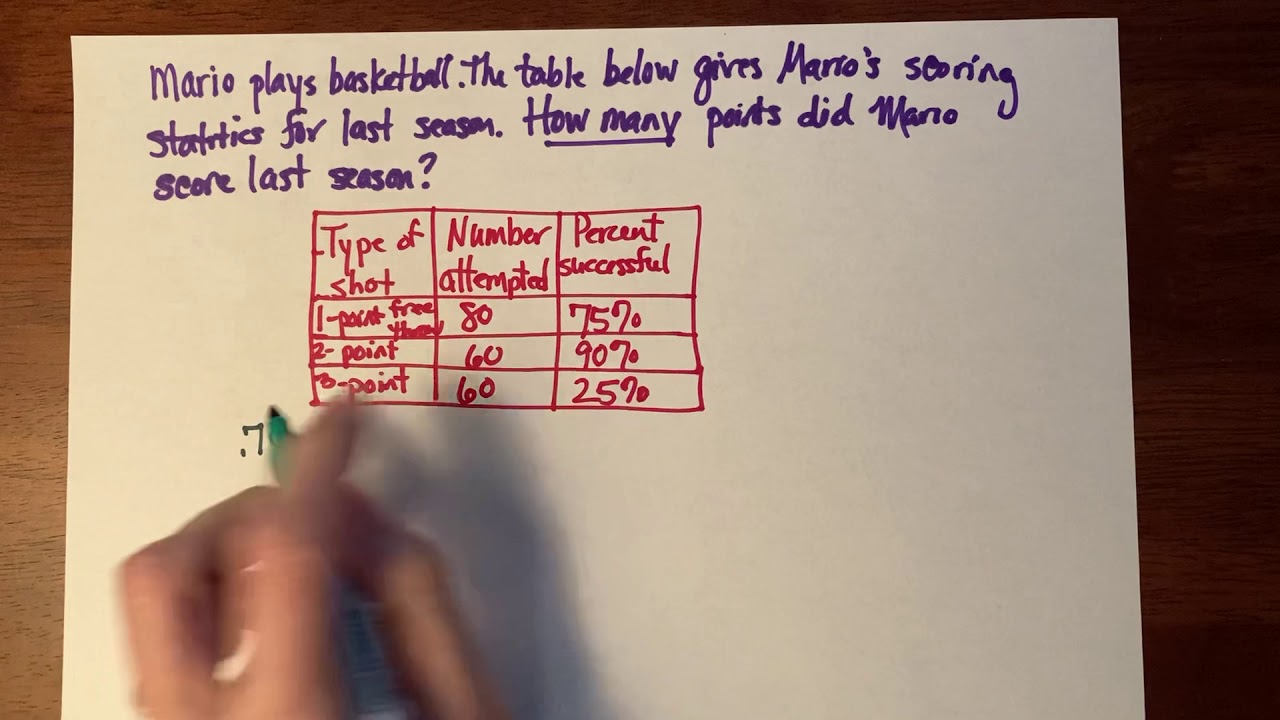 Mario plays basketball. The table below gives Mario's scoring
statistics for last season. How many points did Mario
score last season?
Type of shot Number attempted Percent successful
1-point free throw 80 75%
2-point 60 90%
3-point 60 25%
.7